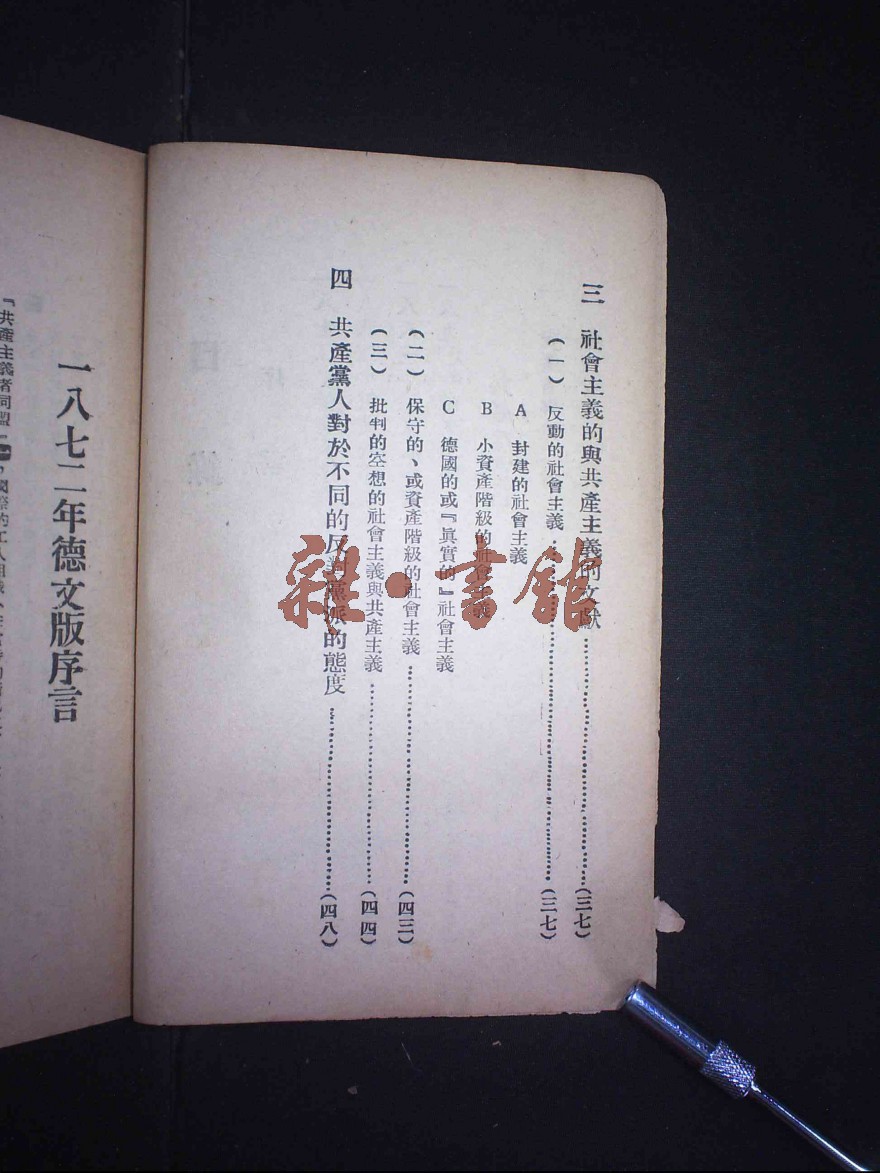 三　社會主義的與共產主義的文獻……(三七)
(一)　反動的社會主義……(三七)
A　封建的社會主義
B　小資產階級的社會主義
C　德國的或『眞實的』社會主義
(二)　保守的、或資產階級的社會主義……(四三)
(三)　批判的空想的社會主義與共產主義……(四四)
四　共產黨人對於不同的反對黨派的態度……(四八)
一八七二年德文版序言
『共產主義者同盟
雜·書館